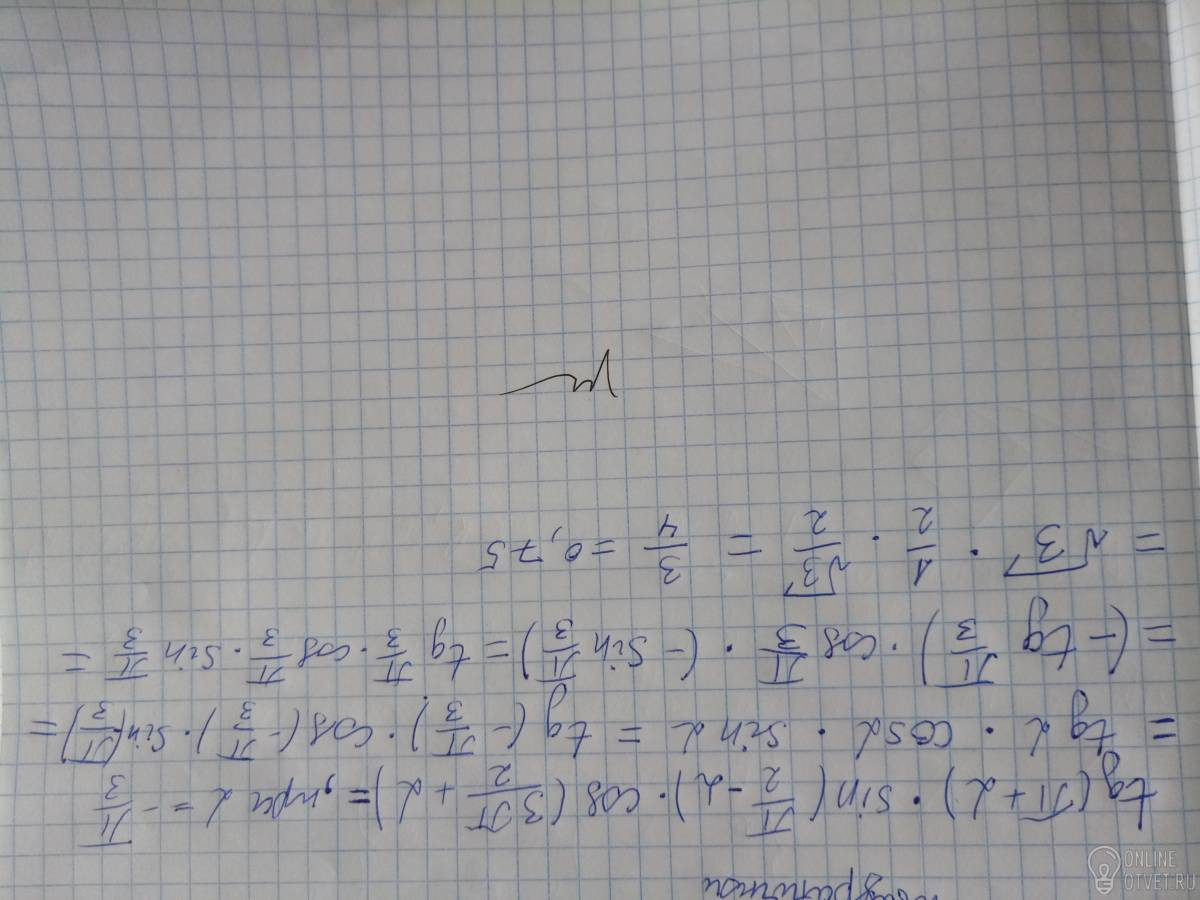 tg(π+α)·sin(π/2-α)·cos(3π/2+α)=, при α=-π/3
=tgα·cosα·sinα=tg(-π/3)·cos(-π/3)·sin(-π/3)=
=(-tg π/3)·cos π/3·(-sin π/3)=tg π/3·cos π/3·sin π/3=
=√3·1/2·√3/2=3/4=0,75
ONLINE
OTVET.RU